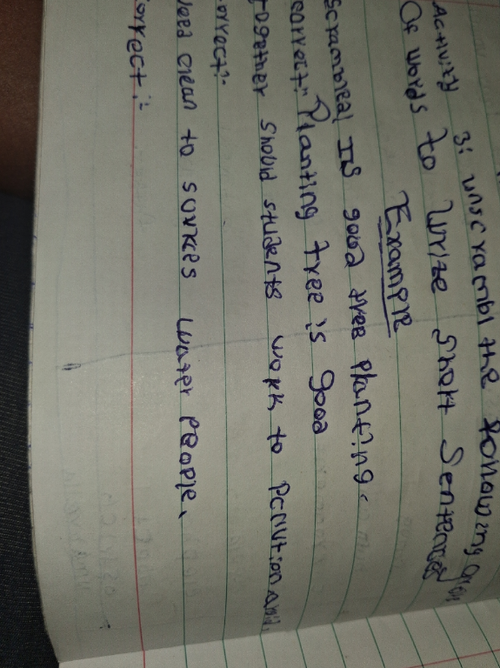 Activity 3: unscrambl the following given
Of words to write short Sentences
Example
scrambled IS good tree planting.
correct:- Planting tree is good
together should students work to
correct:-
need clean to sources water people.
correct:-